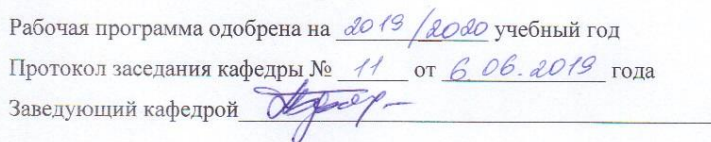 Рабочая программа одобрена на 2019/2020 учебный год
Протокол заседания кафедры № 11 от 6.06.2019 года
Заведующий кафедрой